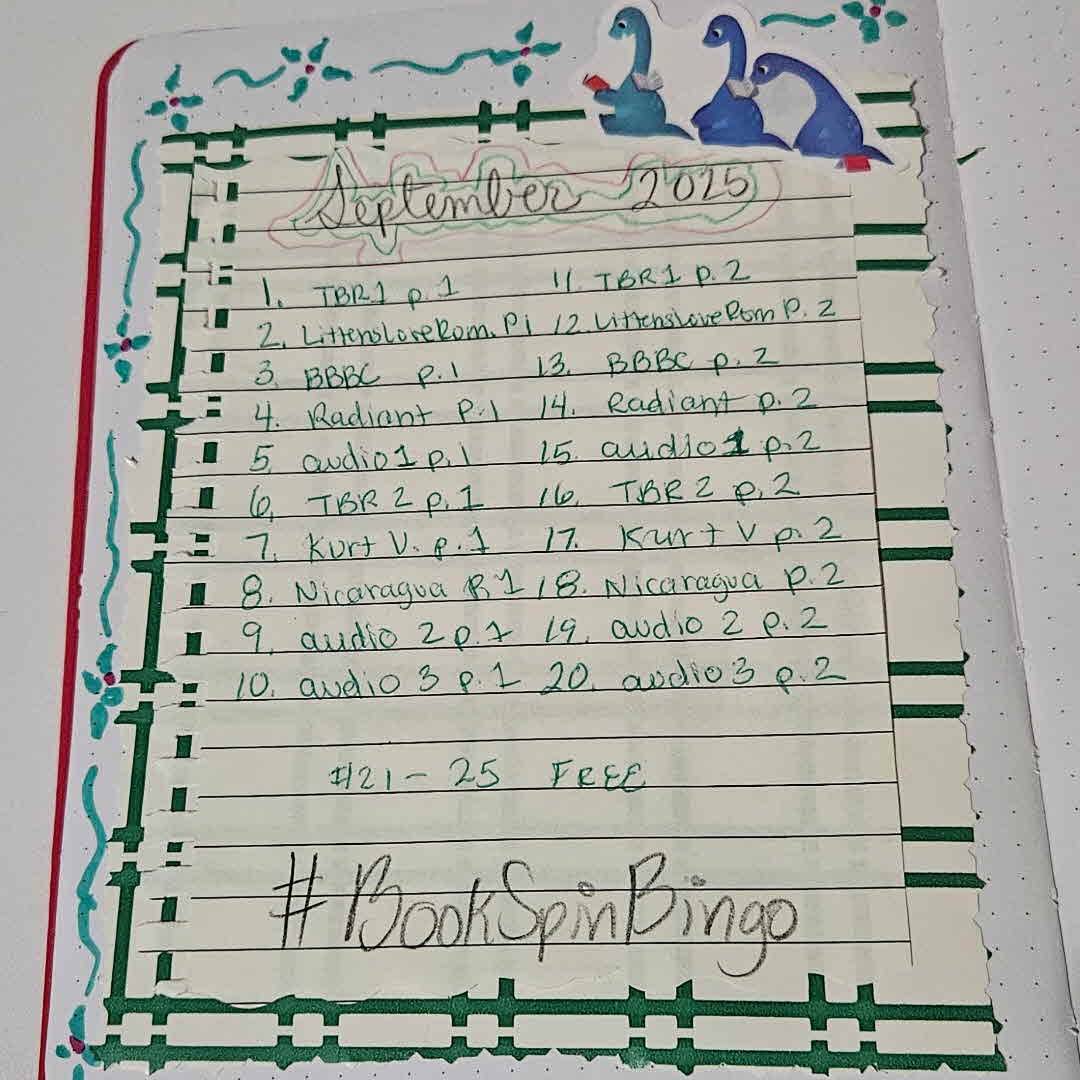 September 2025
1. TBR1 p.1 11. TBR1 p.2
2. LittensLoveRom. P1 12 LittensLoveRom P. 2
3. BBBC p.1 13. BBBC p.2
4. Radiant P.1 14. Radiant p.2
5. audio1 p.1 15. audio1 p.2
6. TBR 2 p.1 16. TBR 2 p.2
7. Kurt V. p.1 17. Kurt V p.2
8. Nicaragua P.1 18. Nicaragua p.2
9. audio 2 p.1 19. audio 2 p.2
10. audio 3 p.1 20. audio 3 p.2
#21-25 FREE
#BookSpinBingo